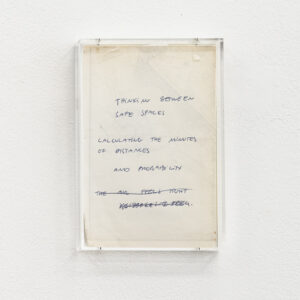 THINKIN BETWEEN
SAFE SPACES
CALCULATING THE MINUTES
OF DISTANCES
AND PROBABILITY
THE AIR FEELS TIGHT